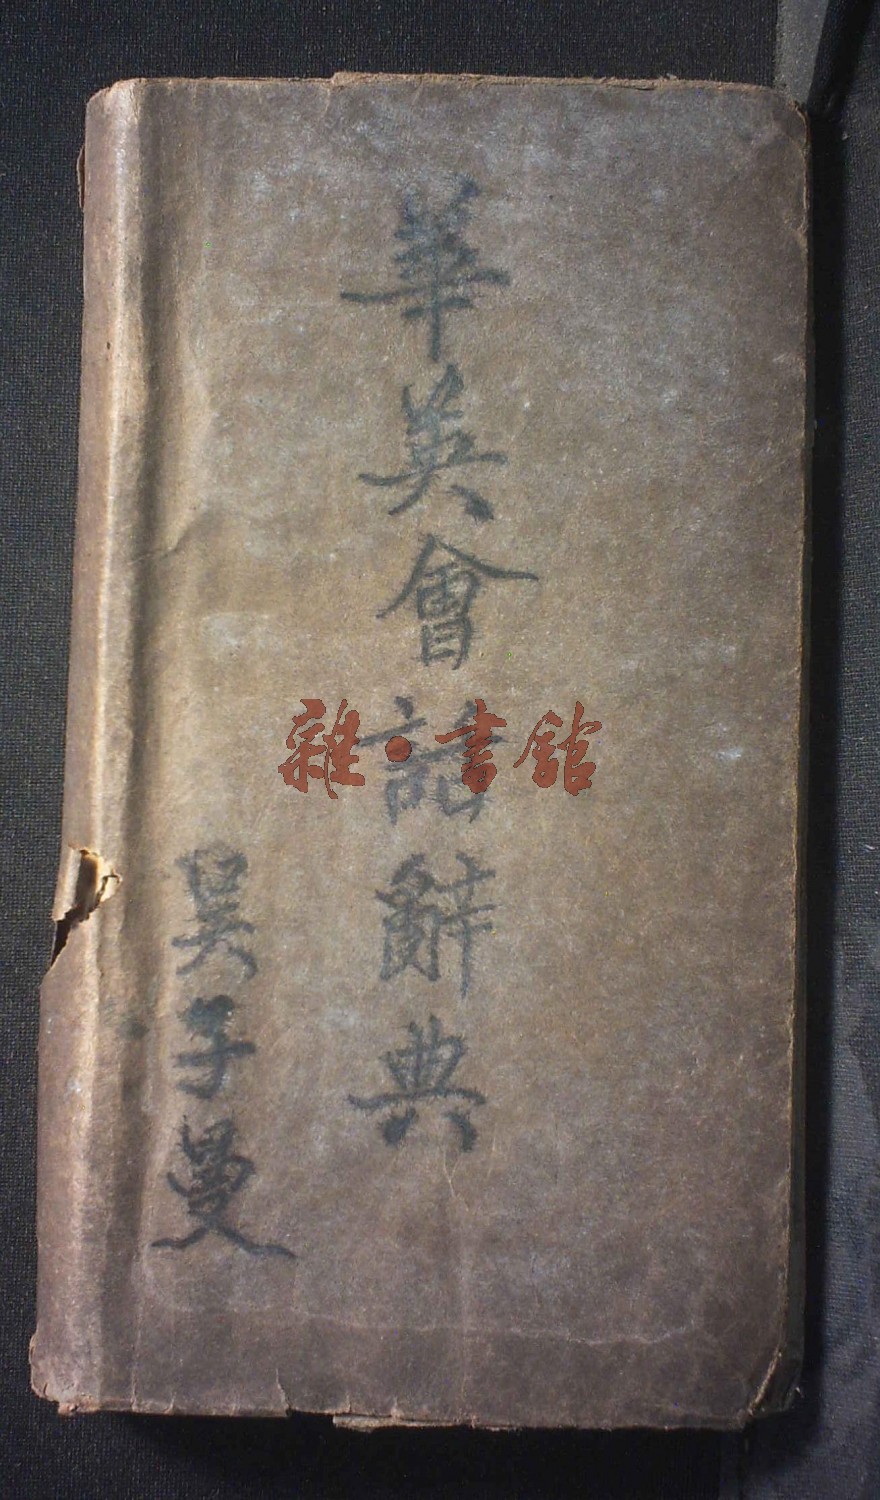 華英會話辭典
吴子曼
雜·書館